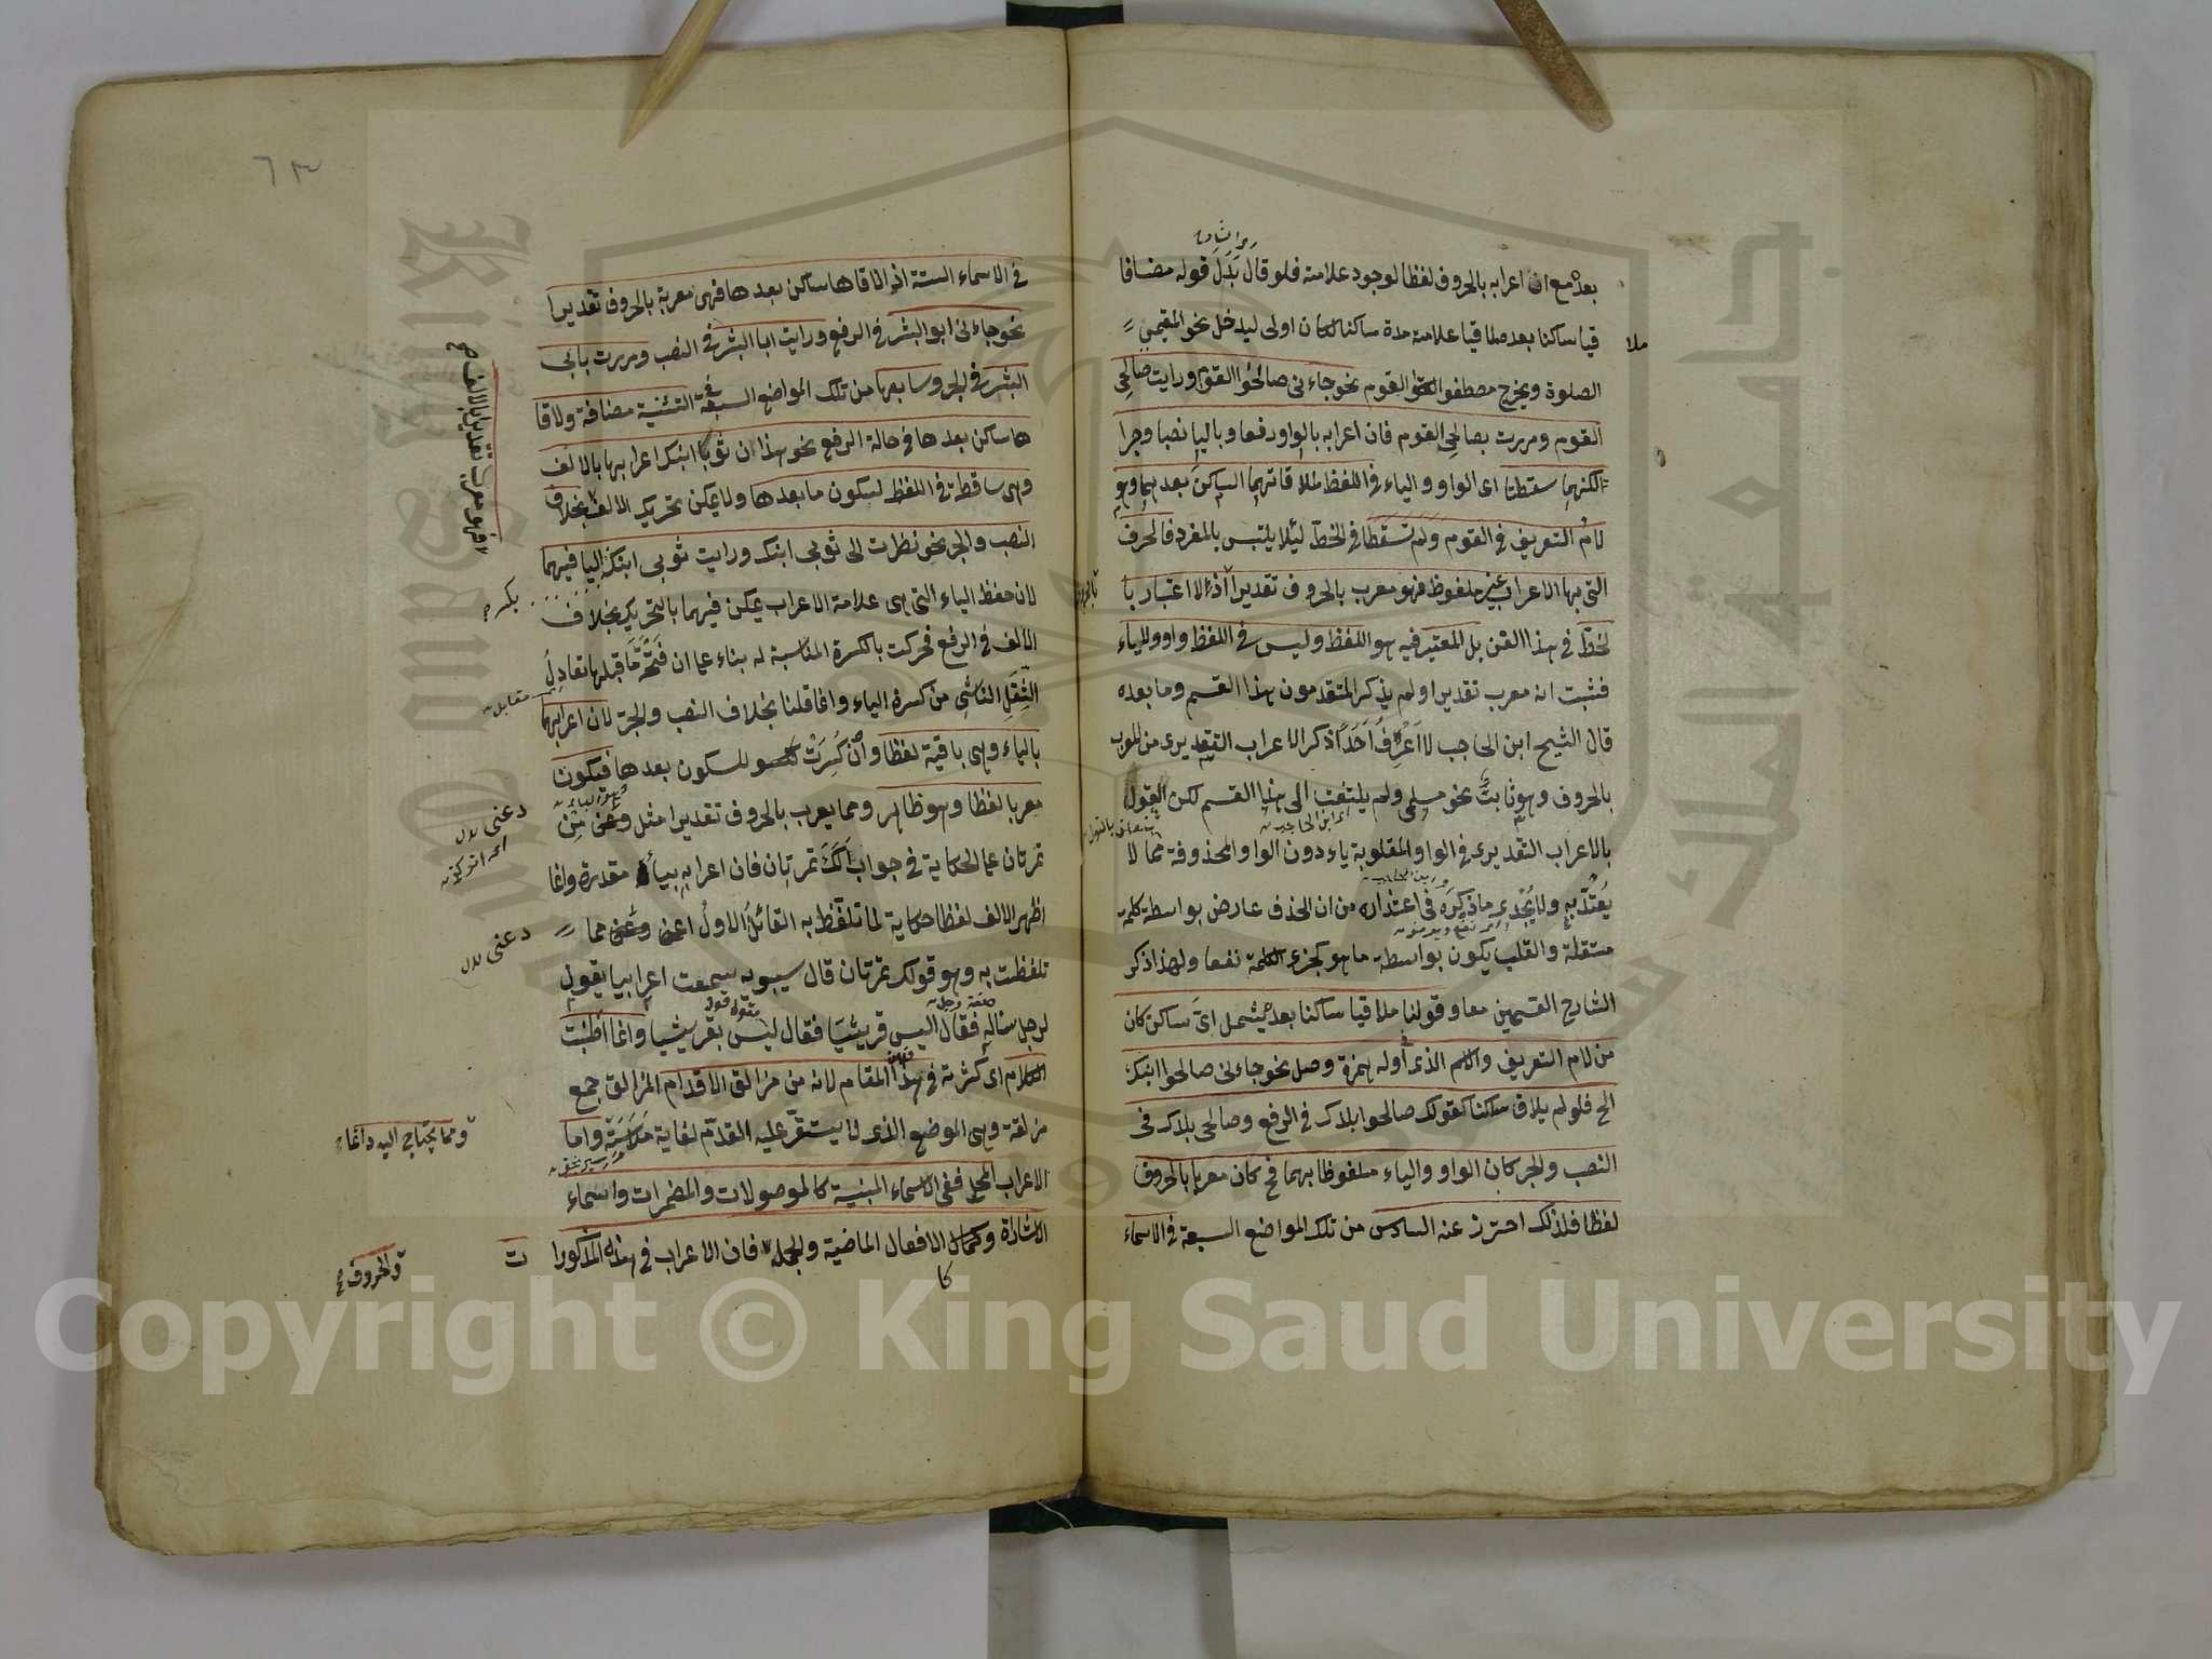 بعده مع ان اعرابه بالحروف لفظا لوجود علامته فلو قال بَدَلَ قوله مضافا
ملا
قيا ساكنا بعده ملاقيا علامته مدة ساكنا لكان اولى ليدخل نحو المقيمي
الصلوة ويخرج مصطفوا القوم نحو جاءنى صالحُوا القوم ورايت صالحِى
القوم ومررت بصالحِى القوم فان اعرابه بالواو رفعا وباليا نصبا وجرا
لكنهما سقطتا اى الواو والياء فى اللفظ لملاقاتهما الساكنَ بعدهما وهو
لامُ التعريف فى القوم ولم تسقطا فى الخطّ لئلا يلتبس بالمفرد فالحرف
التى بها الاعراب غير ملفوظ فهو معرب بالحروف تقديراً اذ لا اعتبار با
لخطّ فى هذا الفن بل المعتبر فيه هو اللفظ وليس فى اللفظ واو ولا ياء
فثبت انه معرب تقديرا ولم يذكر المتقدمون هذا القسم وما بعده
قال الشيخ ابن الحاجب لا اَعْرِفُ اَحَداً ذكر الاعراب التقديرى من المعرب
بالحروف وهو ثابت نحو مسلمى ولم يلتفت الى هذا القسم لكن القول
اى ابن الحاجب
بالاعراب التقديرى فى الواو المقلوبة ياء دون الواو المحذوفة مما لا
يُعْتَدّ به ولا يُجْدِى ماذكرَه فى اعتذاره من ان الحذف عارض بواسطة كلمة
مستقلة والقلب يكون بواسطة ما هو كجزء الكلمة نفعا ولهذا ذكر
الشارح القسمين معا وقولنا ملاقيا ساكنا بعده يشمل اىَّ ساكن كان
من لام التعريف والاسم الذى أوله همزة وصل نحو جاءنى صالحوا ابنك
الخ فلو لم يلاق ساكنا كقولك صالحوا بلادك فى الرفع وصالحى بلادك فى
النصب والجر كان الواو والياء ملفوظا بهما فح كان معربا بالحروف
لفظا فلذلك احترز عنه السادس من تلك المواضع السبعة فى الاسماء
٦٣
فى الاسماء الستة اذا لاقاها ساكن بعدها فهى معربة بالحروف تقديرا
نحو جاءنى ابو البشر فى الرفع ورايت ابا البشر فى النصب ومررت بابى
البشر فى الجر وسابعها من تلك المواضع السبعة فى التثنية مضافة ولاقا
ها ساكن بعدها فى حالة الرفع نحو هذان ثوبا ابنك اعرابها بالالف
وهى ساقطة فى اللفظ لسكون ما بعدها ولا يمكن تحريك الالف بخلاف
فهو معرب تقديرا بالالف
النصب والجر نحو نظرت الى ثوبى ابنك ورايت ثوبى ابنك اليا فيهما
لان حفظ الياء التى هى علامة الاعراب يمكن فيهما بالتحريك بخلاف
الالف فى الرفع فحركت بالكسرة المناسبة له بناء على ان فَتحَةَ ما قبلها تعادِلُ
الثِقَلِ الناشِى من كسرة الياء وانما قلنا بخلاف النصب والجرّ لان اعرابهما
بالياء وهى باقية لفظا وان كُسِرَتْ للسكون بعدها فيكون
معربا لفظا وهو ظاهر ومما يعرب بالحروف تقديرا مثل دعنى مِن
تمرتان على الحكاية فى جواب اَلَكَ تمرتان فان اعرابه بياء مقدرة وانما
اظهر الالف لفظا حكاية لما تلفّظ به القائلُ الاولُ اعنى دعنى مما
تلفظت به وهو قولك تمرتان قال سيبويه سمعت اعرابيا يقول
لرجل ساله فقال اليس قريشيّا فقال ليس بقريشيا وانما اَطْنَبْت
الكلام اى كثرته فى هذا المقام لانه من مزالق الاقدام المزالق جمع
مزلقة وهى الموضع الذى لا يستقرّ عليه القدم لغاية مَلَاسَتِه واما
ومما يحتاج اليه داغا
الاعراب المحلى ففى الاسماء المبنية كالموصولات والمضمرات واسماء
الاشارة وكما فى الافعال الماضية والجملة فان الاعراب فى هذه المذكورا
ت
والحروف
Copyright © King Saud University